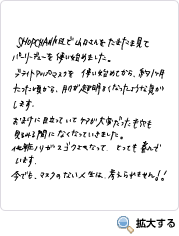 SHOPCHANNELで山口さんをたまたま見て
パーリーデューを使い始めました。
ブライトアップマスクを使い始めてから、約1ヶ月
たった頃から、肌が透明くなったような気が
します。
おまけに目立っていてケアが大変だった毛穴も
見る見る間になくなっていきました。
化粧ノリがスゴクよくなって、とっても喜んで
います。
今でも、マスクのない人生は、考えられません!!
拡大する